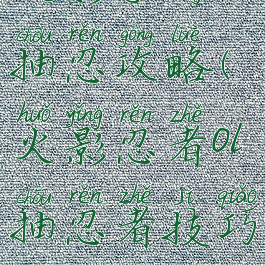 chōu rěn gōng lüè
抽忍攻略(
huǒ yǐng rěn zhě
火影忍者ol
chōu rěn zhě jì qiǎo
抽忍者技巧